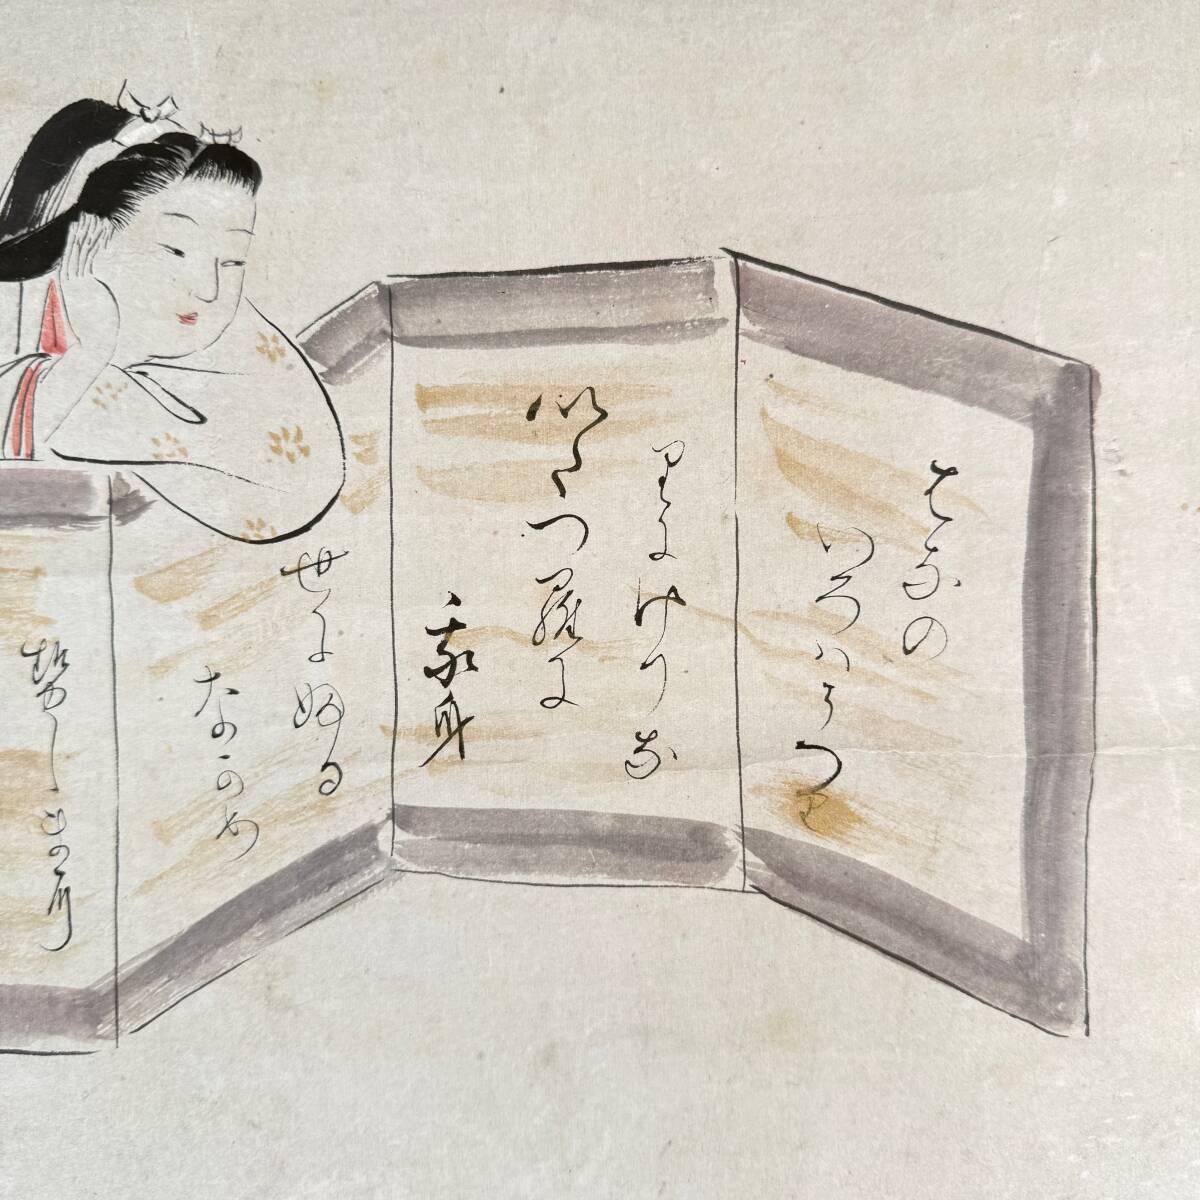 はなの
いろハうつ
りにけりな
いたつ羅に
我身
世にふる
なかめ
せしまに